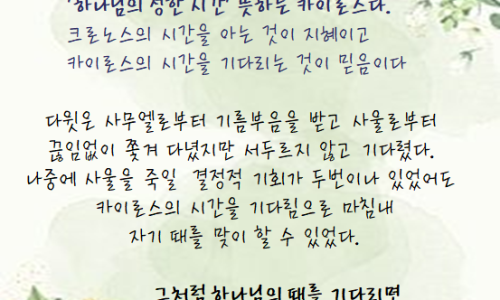 '하나님의 정한 시간' 뜻하는 카이로스다.
크로노스의 시간을 아는 것이 지혜이고
카이로스의 시간을 기다리는 것이 믿음이다
다윗은 사무엘로부터 기름부음을 받고 사울로부터
끊임없이 쫓겨 다녔지만 서두르지 않고 기다렸다.
나중에 사울을 죽일 결정적 기회가 두번이나 있었어도
카이로스의 시간을 기다림으로 마침내
자기 때를 맞이 할 수 있었다.
그처럼 하나님의 때를 기다리면